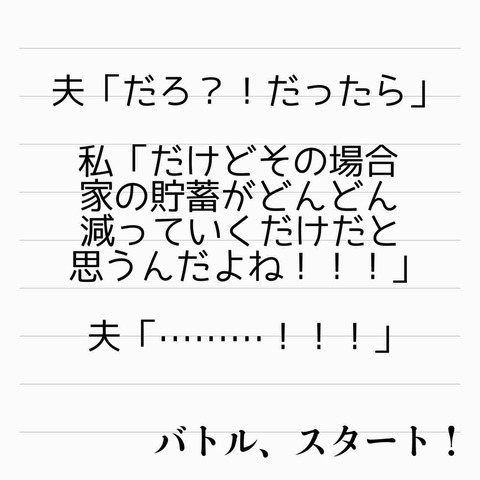 夫「だろ?!だったら」
私「だけどその場合
家の貯蓄がどんどん
減っていくだけだと
思うんだよね!!!」
夫「………!!!」
バトル、スタート!